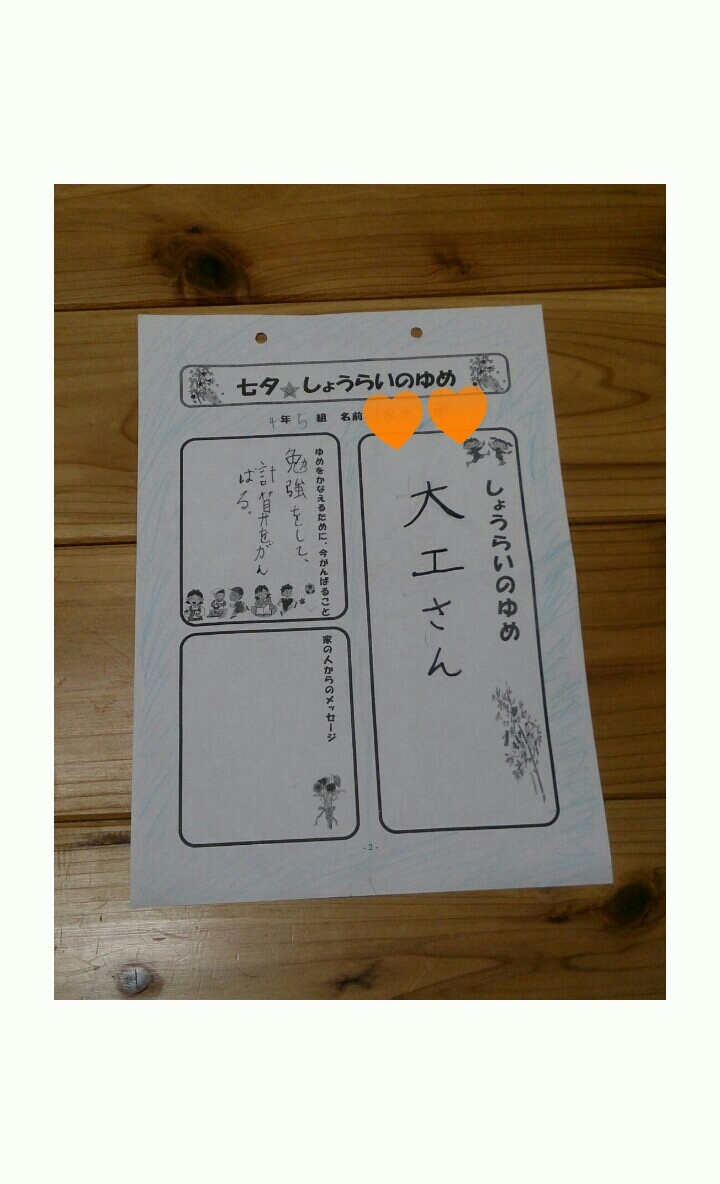 七夕☆しょうらいのゆめ
4年 5組 名前
しょうらいのゆめ
大工さん
ゆめをかなえるために、今がんばること
勉強をして、
計算をがん
ばる。
家の人からのメッセージ
- 2 -